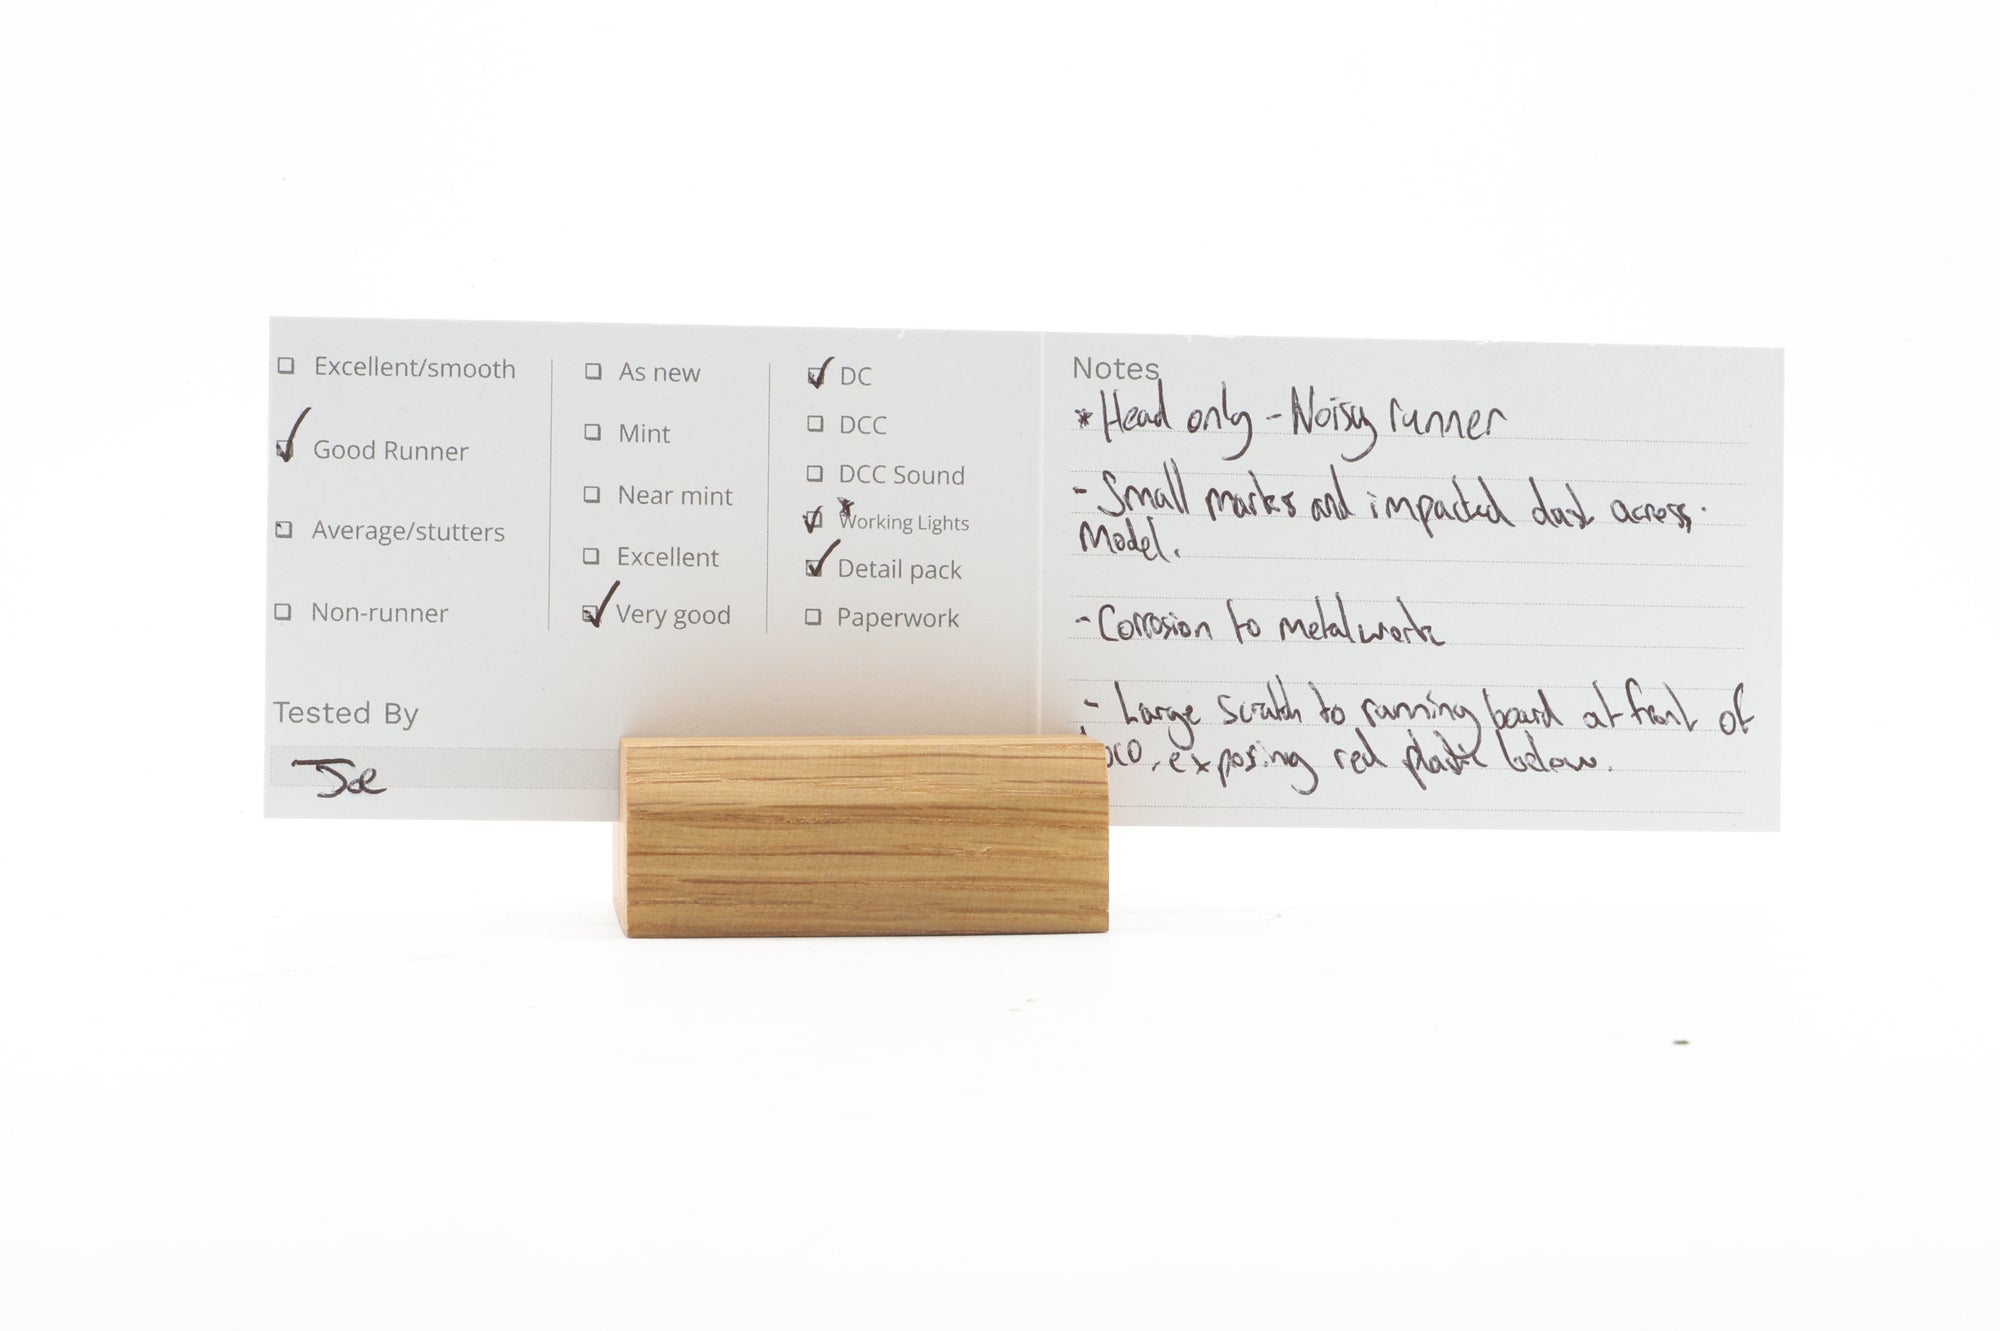 Excellent/smooth
Good Runner
Average/stutters
Non-runner
As new
Mint
Near mint
Excellent
Very good
DC
DCC
DCC Sound
*
Working Lights
Detail pack
Paperwork
Tested By
Joe
Notes
*Head only - Noisy runner
- Small marks and impacted dust across
Model.
- Corrosion to metalwork
- Large scratch to running board at front of
loco, exposing red plastic below.